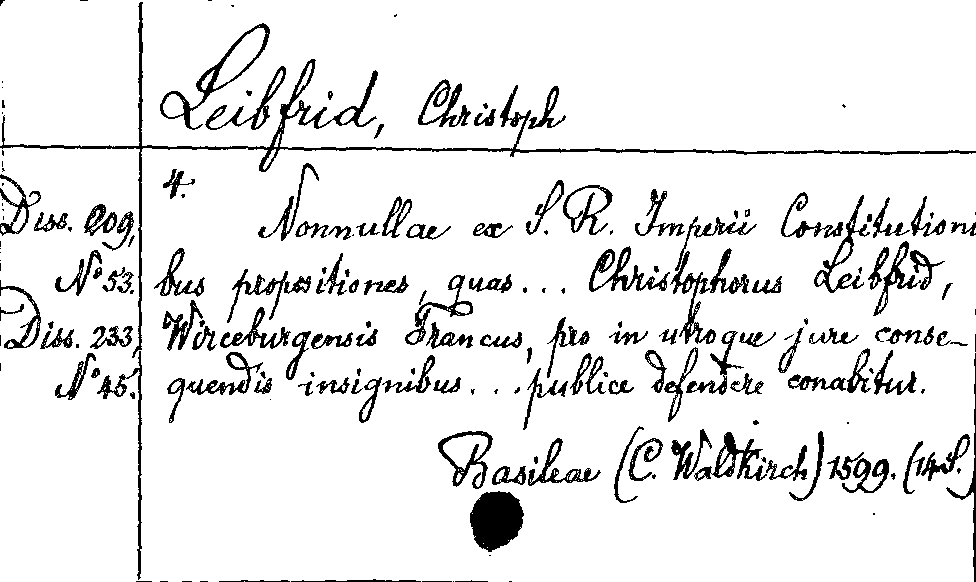 Leibfrid, Christoph
4.
Diss. 209, Nonnullae ex S. R. Imperii Constitutioni
No 53. bus propositiones, quas... Christophorus Leibfrid,
Diss. 233, Wirceburgensis Francus, pro in utroque jure conse-
No 45. quendis insignibus... publice defendere conabitur.
Basileae (C. Waldkirch) 1599. (14 S.)